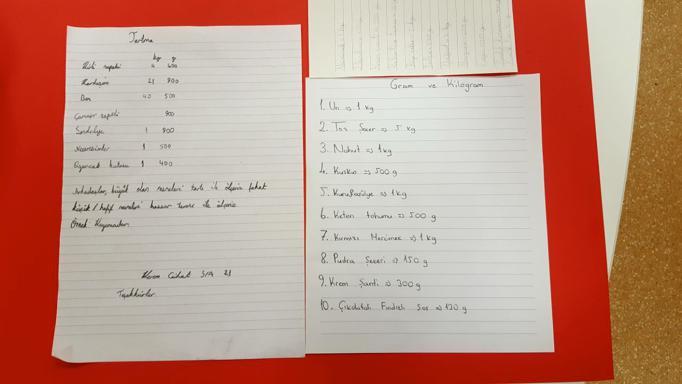 Tartma
kg g
Kirli sepeti 4 400
Kardeşim 21 800
Ben 40 500
Çamaşır sepeti 900
Sandalye 1 800
1 500
Oyuncak kutusu 1 400
Arkadaşlar, büyük olan nesneleri tartı ile ölçeriz fakat
küçük / hafif nesneleri hassas terazi ile ölçeriz
Örnek
5/A 21
Teşekkürler.
Gram ve Kilogram
1. Un => 1 kg
2. Toz Şeker => 5 kg
3. Nohut => 1 kg
4. Kuskus => 500 g
5. Kurufasülye => 1 kg
6. Keten tohumu => 500 g
7. Kırmızı Mercimek => 1 kg
8. Pudra Şekeri => 150 g
9. Krem Şanti => 300 g
10. Çikolatalı Fındıklı Sos => 130 g